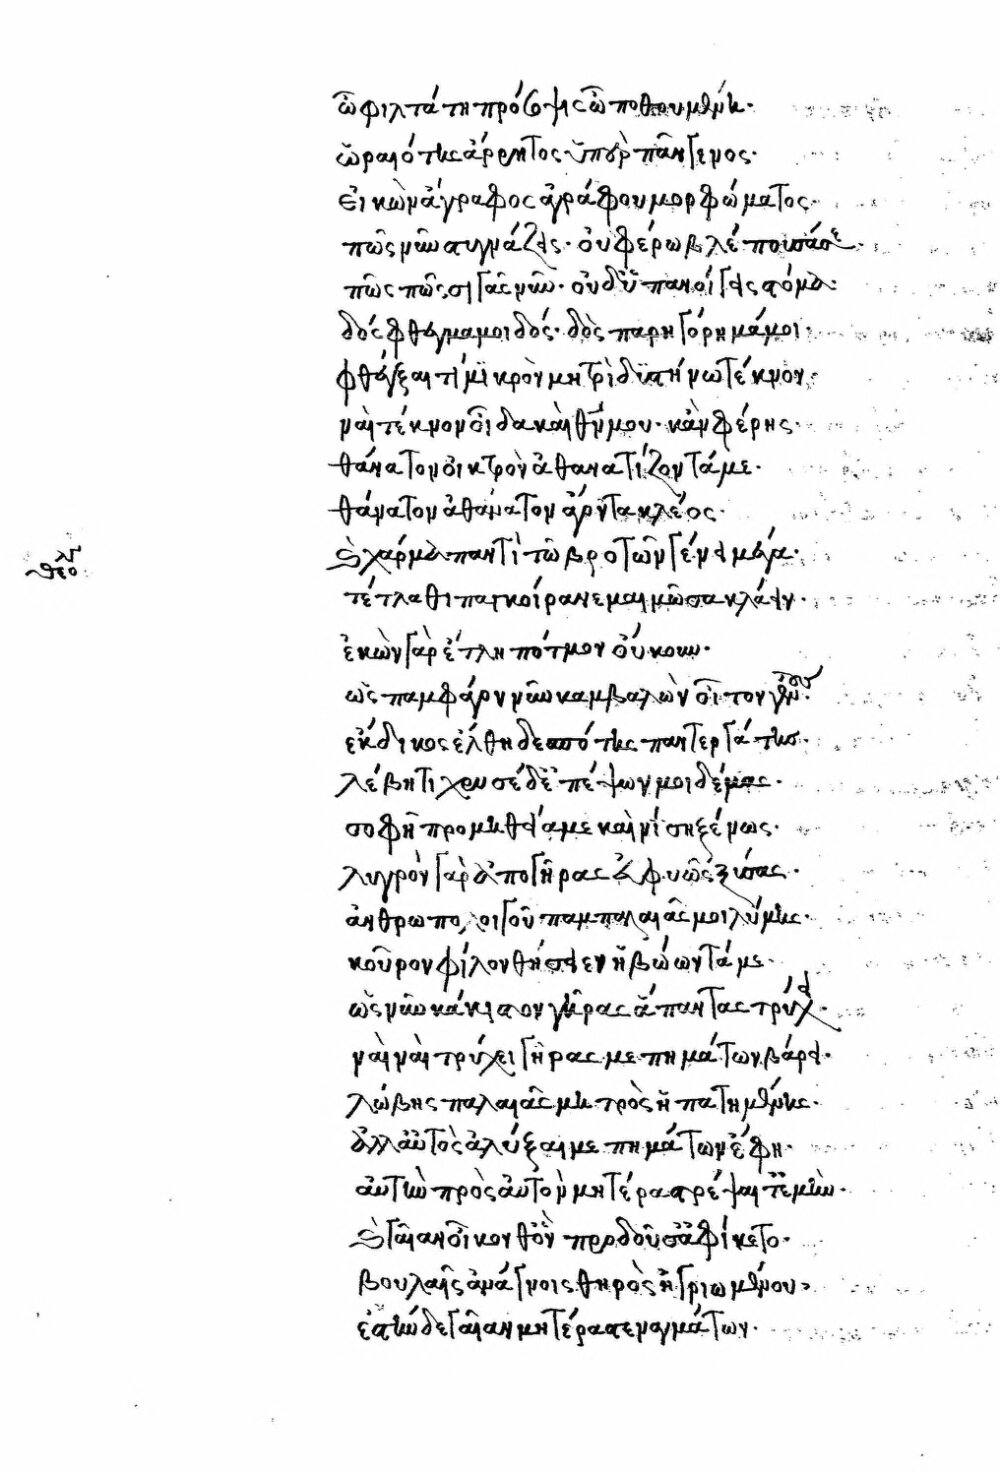 ὦ φιλτάτη πρόσοψις ὦ ποθουμένη·
ὡραιότης ἄρρητος ὑπὲρ πᾶν γένος·
εἰκὼν ἄγραφος ἀγράφου μορφώματος·
πῶς νῦν στυγνάζεις· οὐ φέρω βλέπουσά σε·
πῶς πῶς σιγᾶς νῦν· οὐδ' ὑπανοίγεις στόμα:
δὸς φθέγμα μοι δός· δὸς παρηγόρημά μοι·
φθέγξαι τί μικρὸν μητρὶ δυστήνῳ τέκνον·
ναὶ τέκνον οἶδα καὶ θεήν μου· κἂν φέρῃς·
θάνατον οἰκτρὸν ἀθανατίζοντά με·
θάνατον ἀθάνατον ἄροντα κλέος·
ὃ χάρμα παντὶ τῶ βροτῶν γένει μέγα·
θεολ
τέτλαθι παγκοίρανε μαιμῶσα κλάειν·
ἑκὼν γὰρ ἔτλη πότμον οὐκουν·
ὡς παμφάρυγγ νῦν καμβαλὼν οἷ τὸν γόνου
ἔκδικος ἔλθῃ δεσπότης παντεργάτης·
λέβητι χρυσέῳ δὲ πέψων μοι δέμας·
σοφῆ προμηθείᾳ με καινίσῃ ξένως·
λυγρὸν γὰρ ἀπὸ γῆρας εὐφυῶς ξύσας·
ἀνθρωπολοιγοῦ παμπαλαιᾶς μοι λύμης·
κοῦρον φίλον θήσειεν ἡβώωντά με·
ὡς νῦν κάκιστον γῆρας ἅπαντας τρύχει·
ναὶ ναὶ τρύχει γῆρας με πημάτων βάρει·
λώβης παλαιᾶς μητρὸς ἠπατημένης·
ἀλλ' αὐτὸς ἀλύξαι με πημάτων ἔφη·
αὐτὴν πρὸς αὐτὸν μητέρα στρέψαι τ' ἐμὴν·
ὃ γαῖαν οἶκον θ' ὃν προδοῦσ' ἀφίκετο·
βουλαῖς ἀνάγνοις θηρὸς ἠγριωμένου·
ἑστὼ δὲ γαῖαν μητέρα στεναγμάτων·